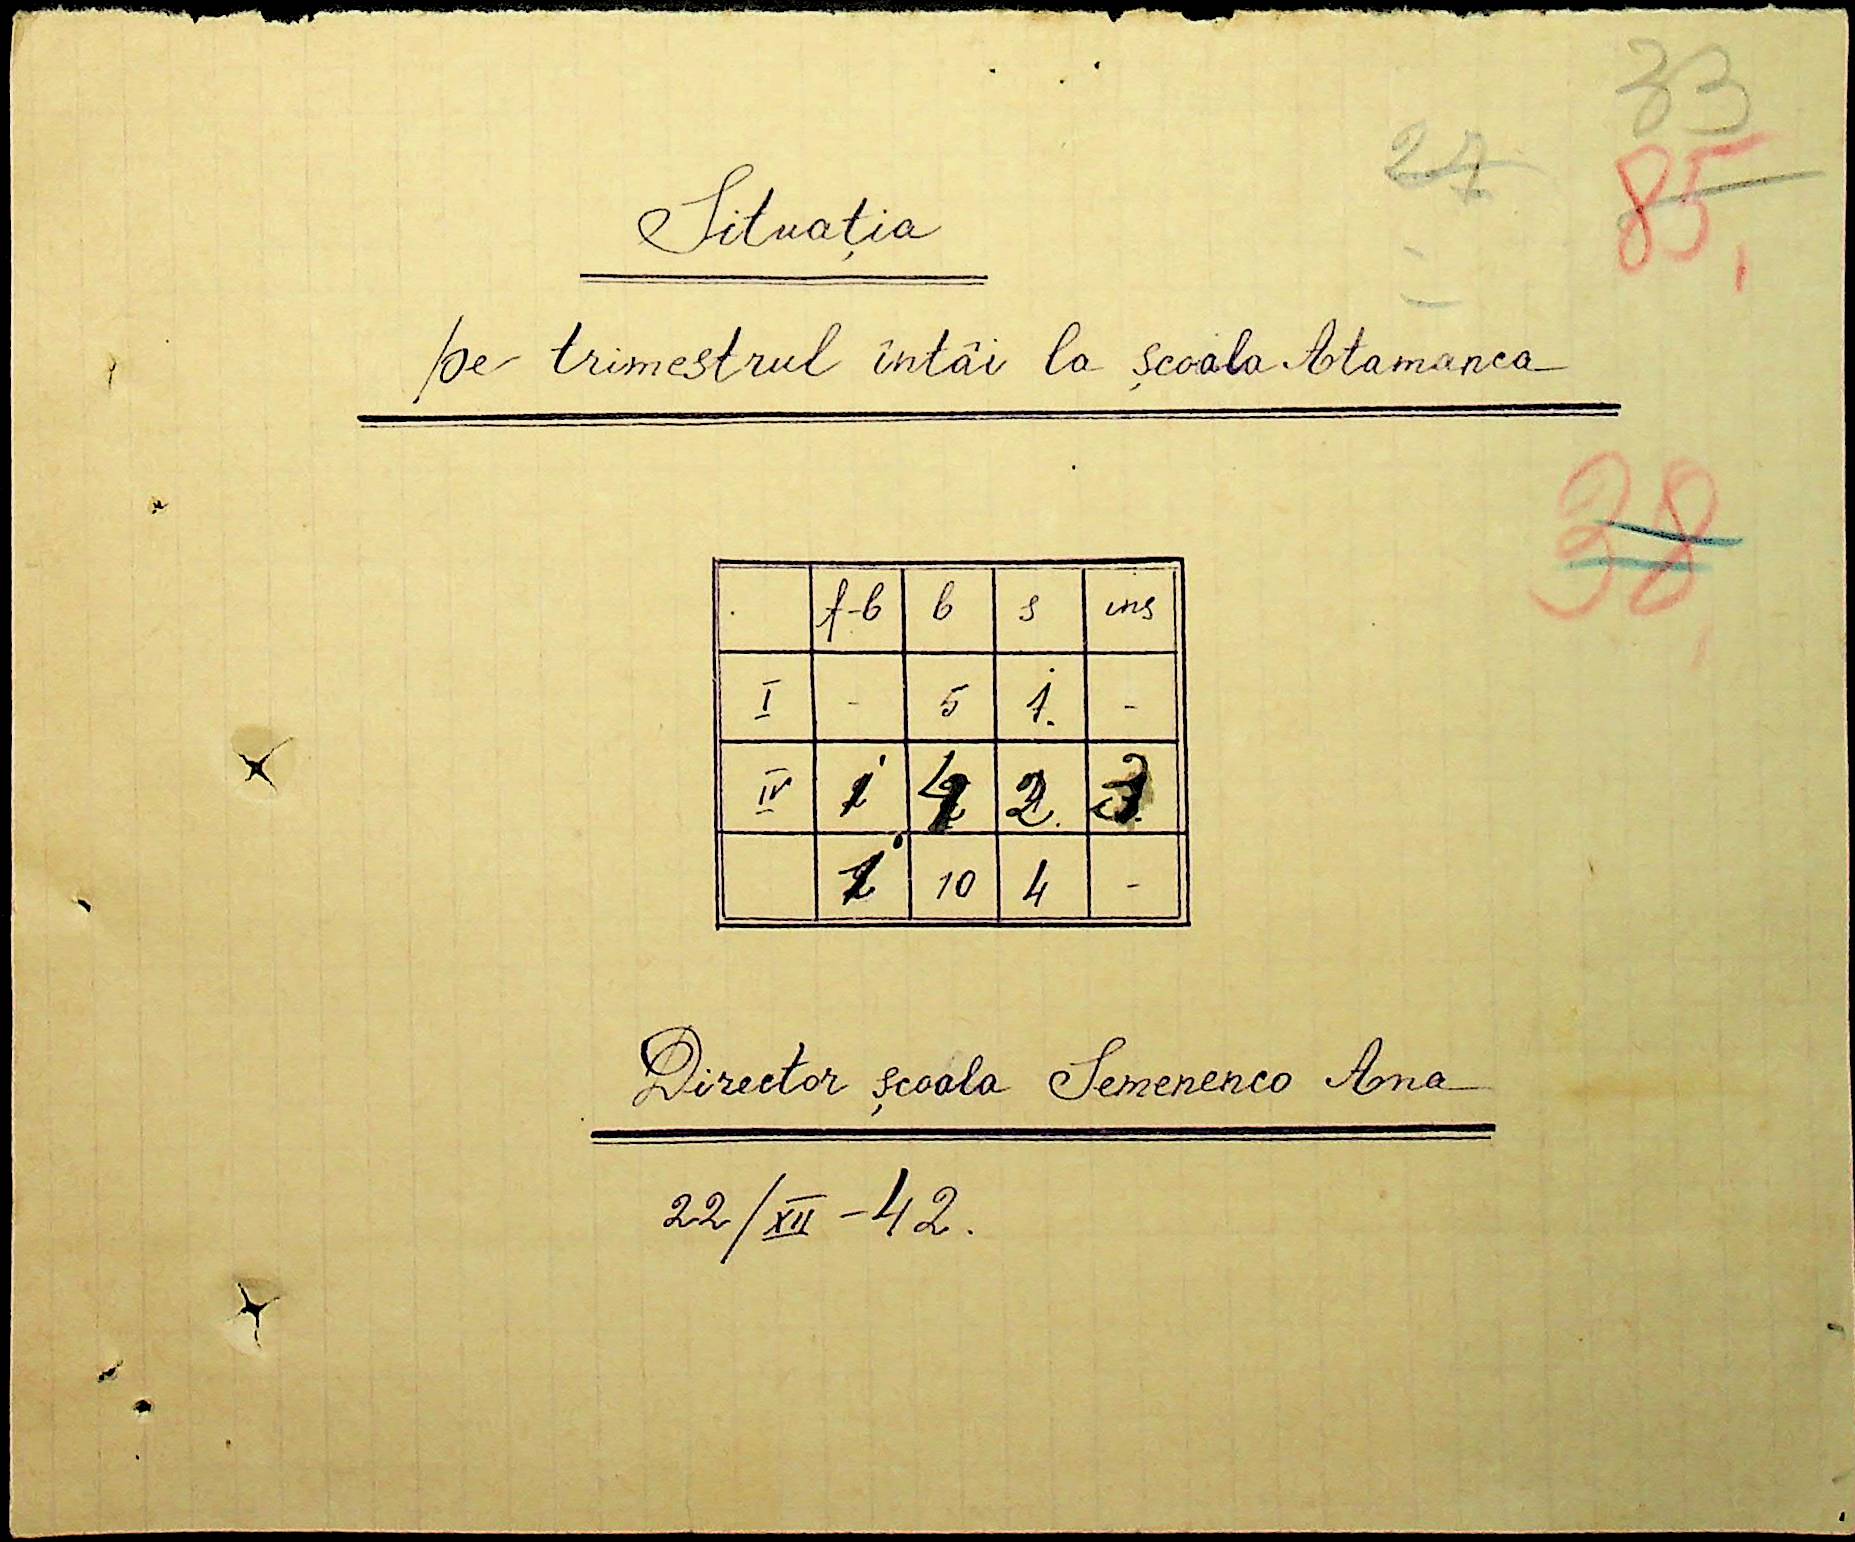 33
27
85,
Situația
pe trimestrul întâi la școala Atamanca
38,
f-b b s ins
I - 5 1. -
IV 1 4 2.
1 10 4 -
Director școala Semenenco Ana
22/XII-42.